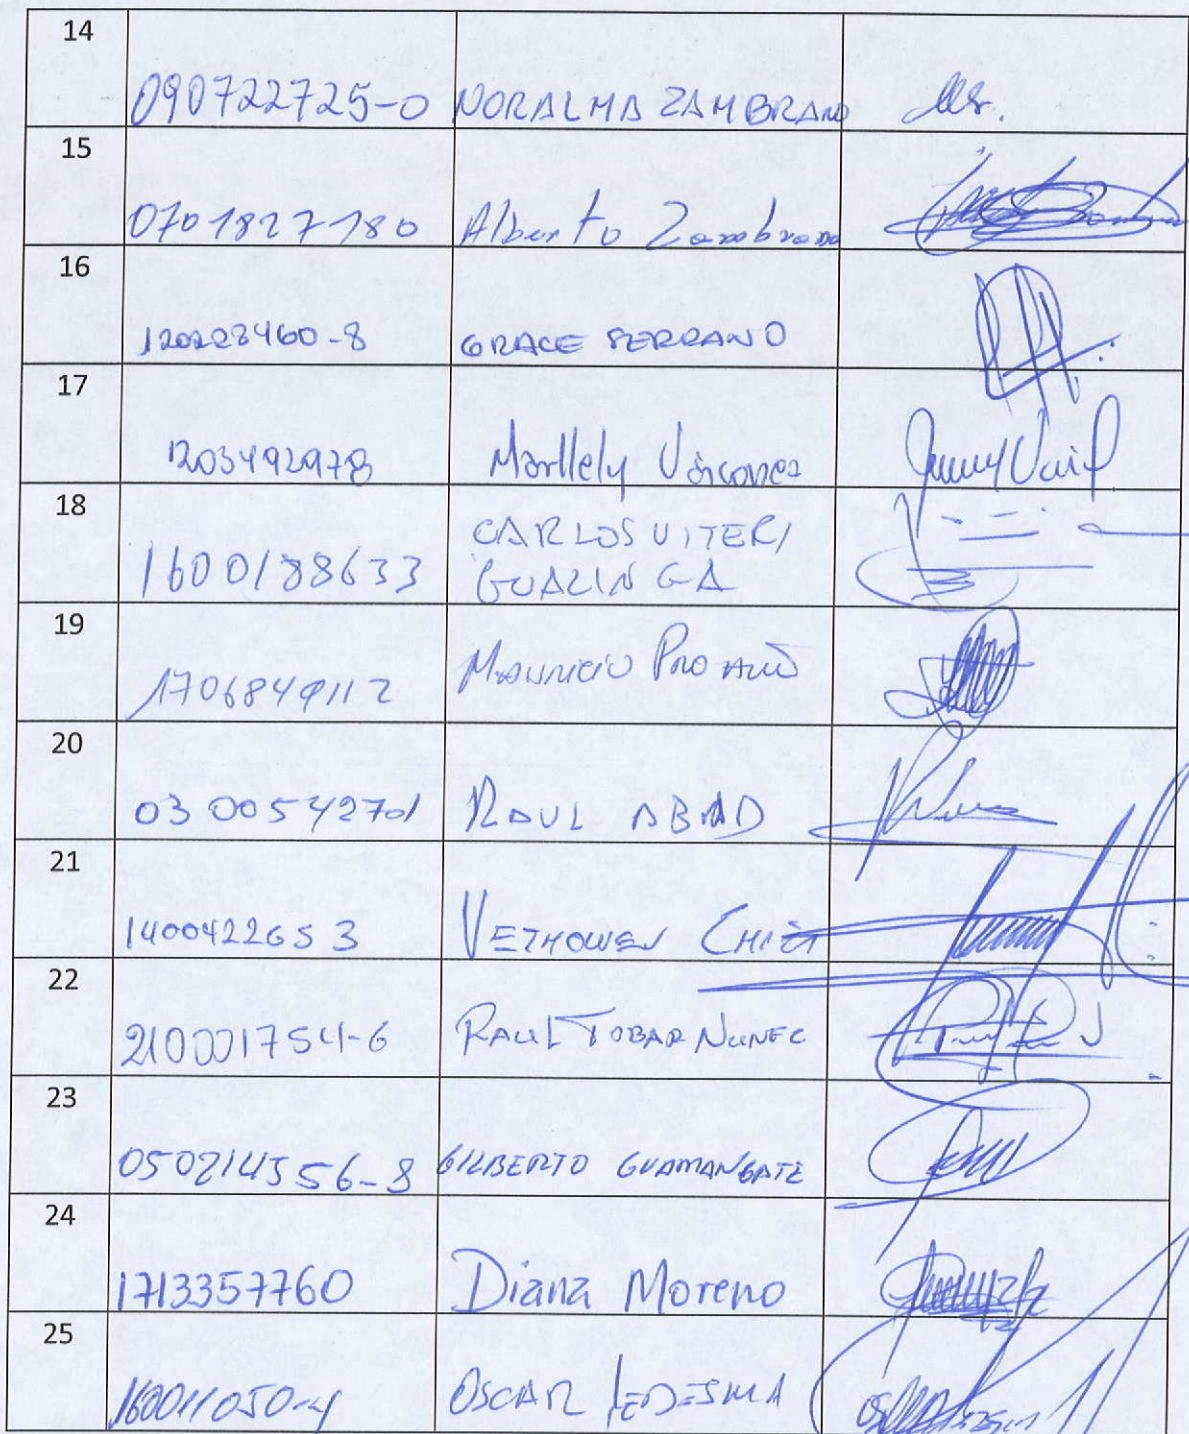 14
090722725-0 NORALMA ZAMBRANO
15
0701827180 Alberto Zambrano
16
120228460-8 GRACE SERRANO
17
1203492978 Marllely Vásconez
18
1600188633 CARLOS VITERI
GUALINGA
19
1706849112 Mauricio Proaño
20
0300542701 RAUL ABAD
21
1400422653 VETHOWEN CHICA
22
210001754-6 RAUL TOBAR NUNEC
23
050214556-8 GILBERTO GUAMANGATE
24
1713357760 Diana Moreno
25
160011050-4 OSCAR LEDESMA